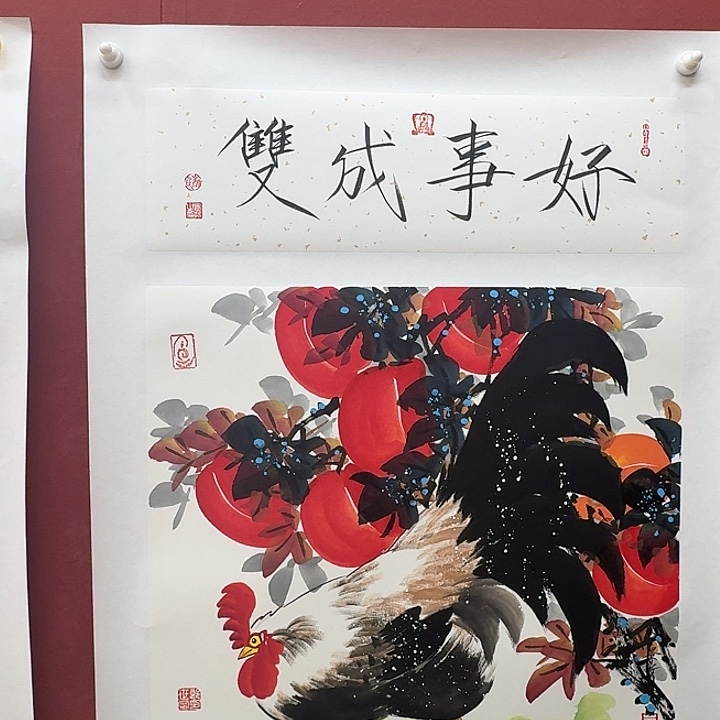 好事成雙